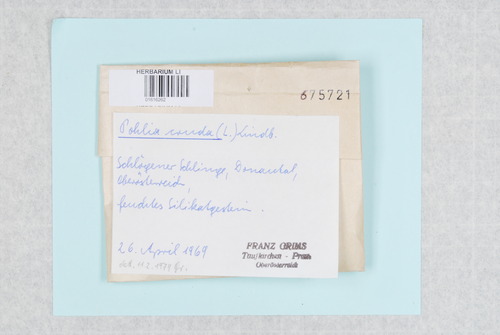 HERBARIUM LI
675721
Pohlia cruda (L.) Lindb.
Schlögener Schlinge, Donautal,
Oberösterreich,
feuchtes Silikatgestein.
26. April 1969
FRANZ GRIMS
Taufkirchen - Pram
Oberösterreich